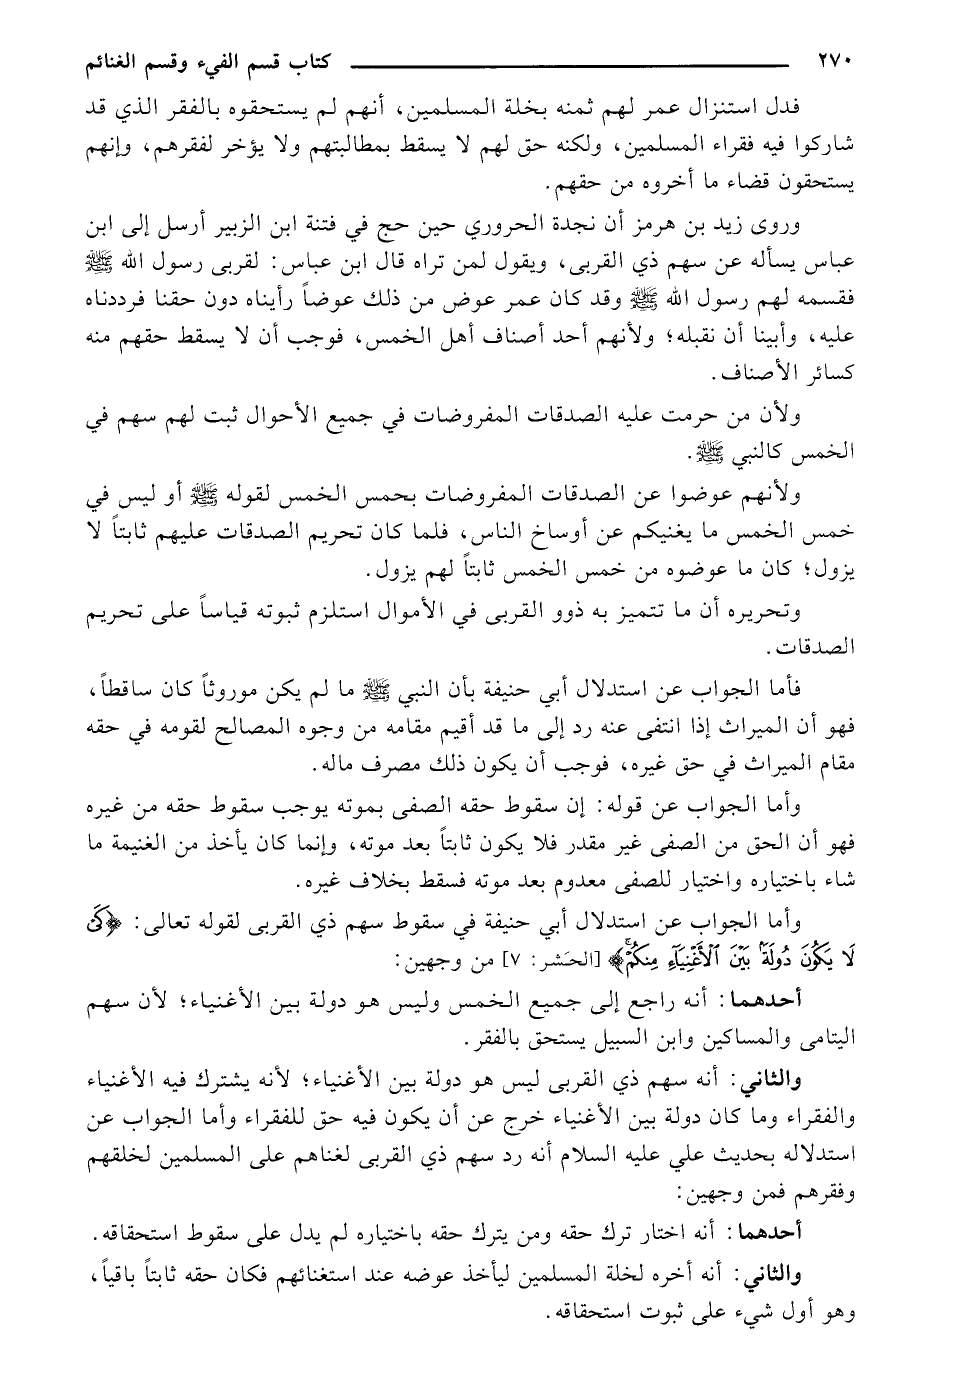 ٢٧٠ كتاب قسم الفيء وقسم الغنائم
فدل استنزال عمر لهم ثمنه بخلة المسلمين، أنهم لم يستحقوه بالفقر الذي قد
شاركوا فيه فقراء المسلمين، ولكنه حق لهم لا يسقط بمطالبتهم ولا يؤخر لفقرهم، وإنهم
يستحقون قضاء ما أخروه من حقهم.
وروى زيد بن هرمز أن نجدة الحروري حين حج في فتنة ابن الزبير أرسل إلى ابن
عباس يسأله عن سهم ذي القربى، ويقول لمن تراه قال ابن عباس: لقربى رسول الله ﷺ
فقسمه لهم رسول الله ﷺ وقد كان عمر عوض من ذلك عوضاً رأيناه دون حقنا فرددناه
عليه، وأبينا أن نقبله؛ ولأنهم أحد أصناف أهل الخمس، فوجب أن لا يسقط حقهم منه
كسائر الأصناف.
ولأن من حرمت عليه الصدقات المفروضات في جميع الأحوال ثبت لهم سهم في
الخمس كالنبي ﷺ.
ولأنهم عوضوا عن الصدقات المفروضات بحمس الخمس لقوله ﷺ أو ليس في
خمس الخمس ما يغنيكم عن أوساخ الناس، فلما كان تحريم الصدقات عليهم ثابتاً لا
يزول؛ كان ما عوضوه من خمس الخمس ثابتاً لهم يزول.
وتحريره أن ما تتميز به ذوو القربى في الأموال استلزم ثبوته قياساً على تحريم
الصدقات.
فأما الجواب عن استدلال أبي حنيفة بأن النبي ﷺ ما لم يكن موروثاً كان ساقطاً،
فهو أن الميراث إذا انتفى عنه رد إلى ما قد أقيم مقامه من وجوه المصالح لقومه في حقه
مقام الميراث في حق غيره، فوجب أن يكون ذلك مصرف ماله.
وأما الجواب عن قوله: إن سقوط حقه الصفى بموته يوجب سقوط حقه من غيره
فهو أن الحق من الصفى غير مقدر فلا يكون ثابتاً بعد موته، وإنما كان يأخذ من الغنيمة ما
شاء باختياره واختيار للصفى معدوم بعد موته فسقط بخلاف غيره.
وأما الجواب عن استدلال أبي حنيفة في سقوط سهم ذي القربى لقوله تعالى: ﴿كَىْ
لَا يَكُونَ دُولَةَۢ بَيْنَ ٱلْأَغْنِيَآءِ مِنكُمْۚ﴾ [الحَشر: ٧] من وجهين:
أحدهما: أنه راجع إلى جميع الخمس وليس هو دولة بين الأغنياء؛ لأن سهم
اليتامى والمساكين وابن السبيل يستحق بالفقر.
والثاني: أنه سهم ذي القربى ليس هو دولة بين الأغنياء؛ لأنه يشترك فيه الأغنياء
والفقراء وما كان دولة بين الأغنياء خرج عن أن يكون فيه حق للفقراء وأما الجواب عن
استدلاله بحديث علي عليه السلام أنه رد سهم ذي القربى لغناهم على المسلمين لخلقهم
وفقرهم فمن وجهين:
أحدهما: أنه اختار ترك حقه ومن يترك حقه باختياره لم يدل على سقوط استحقاقه.
والثاني: أنه أخره لخلة المسلمين ليأخذ عوضه عند استغنائهم فكان حقه ثابتاً باقياً،
وهو أول شيء على ثبوت استحقاقه.